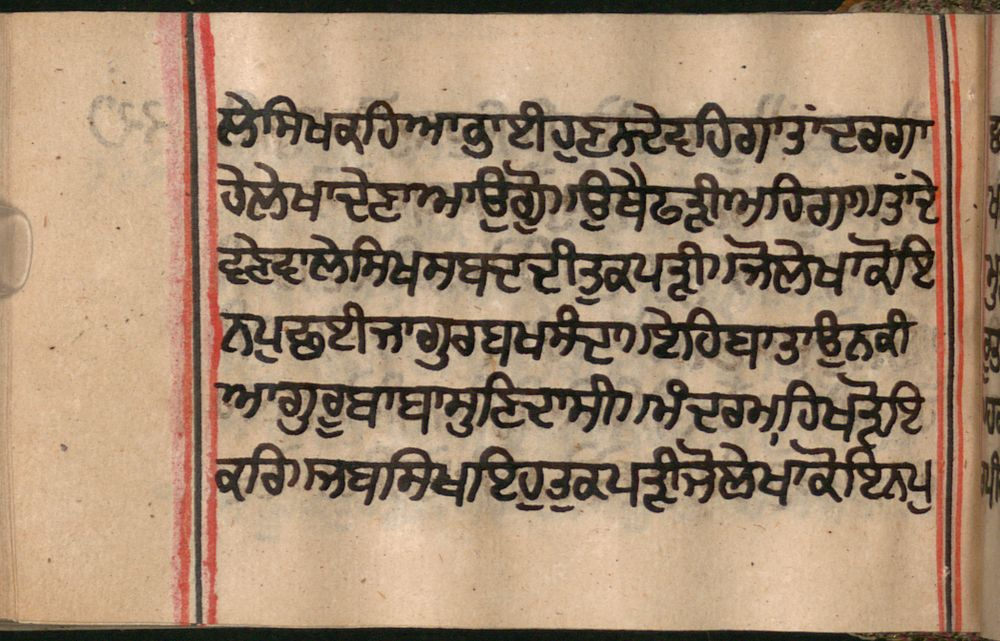 ਲੇਸਿਖਕਹਿਆਭਾਈਹੁਣਨਦੇਵਹਿਗਾਤਾਂਦਰਗਾ
ਹੇਲੇਖਾਦੇਣਾਆਉਗੋ॥ਉਥੈਫੜੀਅਹਿਗਾ॥ਤਾਂਦੇ
ਵਣੇਵਾਲੇਸਿਖਸਬਦਦੀਤੁਕਪੜੀ॥ਜੋਲੇਖਾਕੋਇ
ਨਪੁਛਈਜਾਗੁਰਬਖਸੰਦਾ॥ਏਹਿਬਾਤਾਉਨਕੀ
ਆਗੁਰੂਬਾਬਾਸੁਣਿਦਾਸੀ॥ਮੰਦਰਮਹਿਖੜੋਇ
ਕਰਿ॥ਜਬਸਿਖਇਹੁਤੁਕਪੜੀਜੋਲੇਖਾਕੋਇਨਪੁ